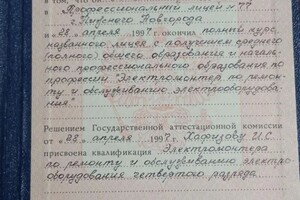 в "Профессиональный лицей № 77
г. Нижнего Новгорода
и "28" апреля 1997 г. окончил полный курс
названного лицея с получением среднего
(полного) общего образования и началь-
ного профессионального образования по
профессии "Электромонтер по ремон-
ту и обслуживанию электрооборудова-
ния"
Решением Государственной аттестационной комиссии
от "28" апреля 1997 г. И.С.
присвоена квалификация Электромонтера
по ремонту и обслуживанию электро-
оборудования четвертого разряда.